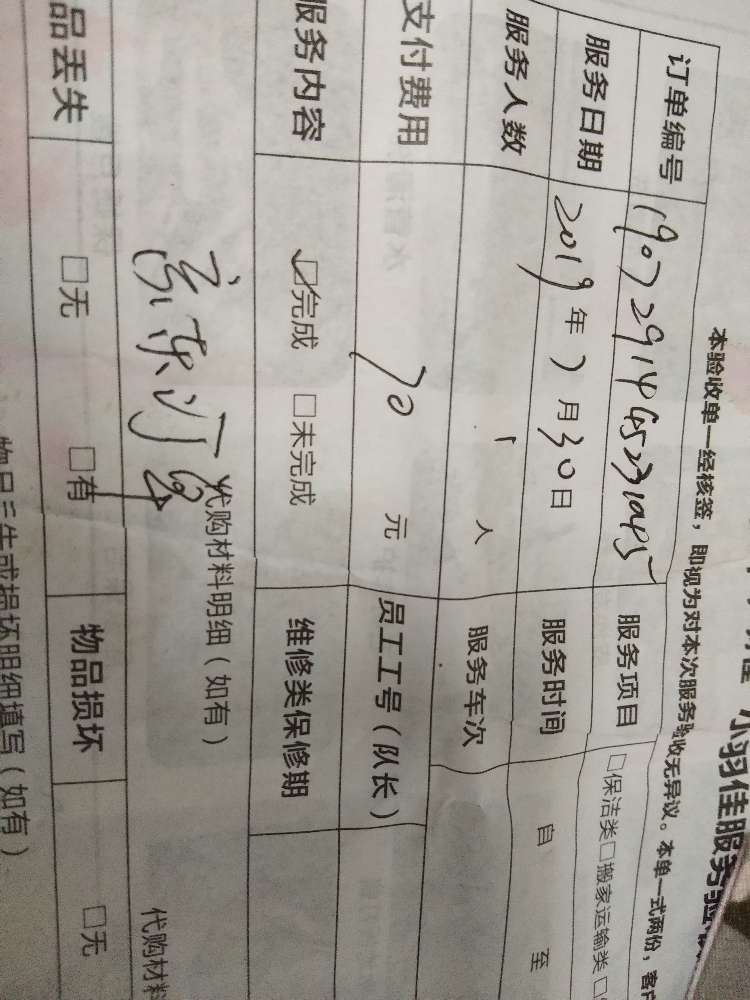 小羽佳服务验
本验收单一经核签，即视为对本次服务验收无异议。本单一式两份，客户
订单编号 服务项目 □保洁类□搬家运输类□
服务日期 2019年7月30日 服务时间 自 至
服务人数 1 人 服务车次
支付费用 70 元 员工工号（队长）
服务内容 ☑完成 □未完成 维修类保修期
代购材料明细（如有） 代购材料
品丢失 □无 □有 物品损坏 □无
损坏明细填写（如有）